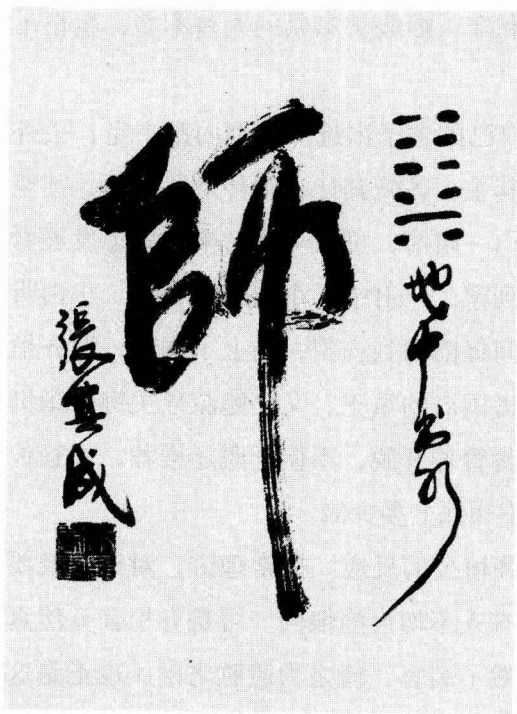 地中有水
師
張其成